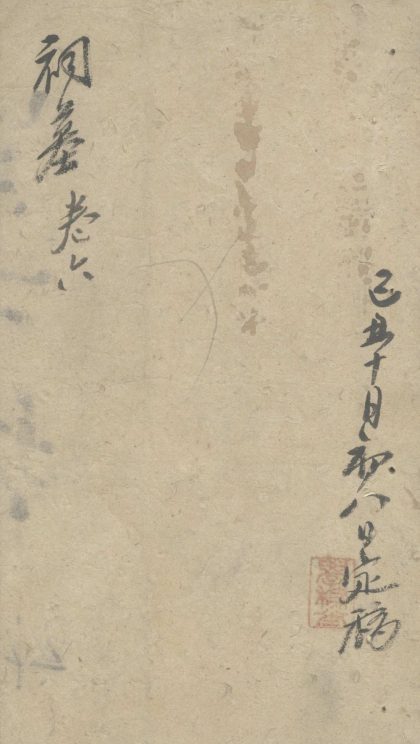 己丑十月初八日定稿
祠墓 卷六